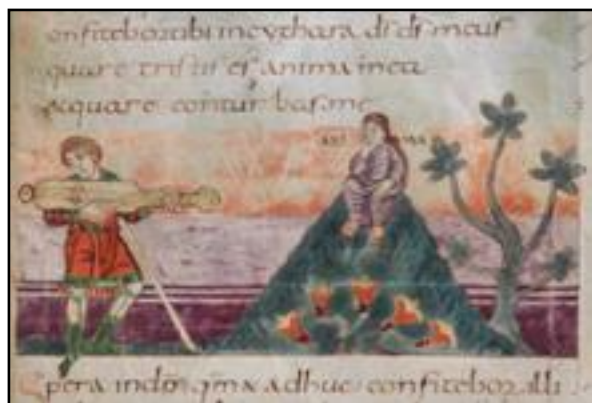 onfitebortibi incythara dsdsmeus
quare tristis es anima mea
&quare conturbasme
ANI MA
Spera indm qmx adhuc confitebor illi